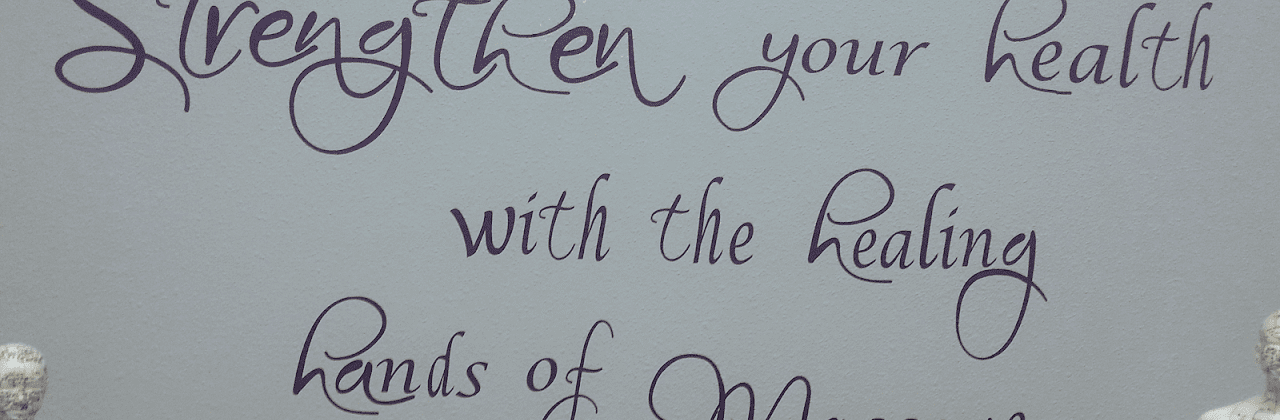 Strengthen your health
with the healing
hands of